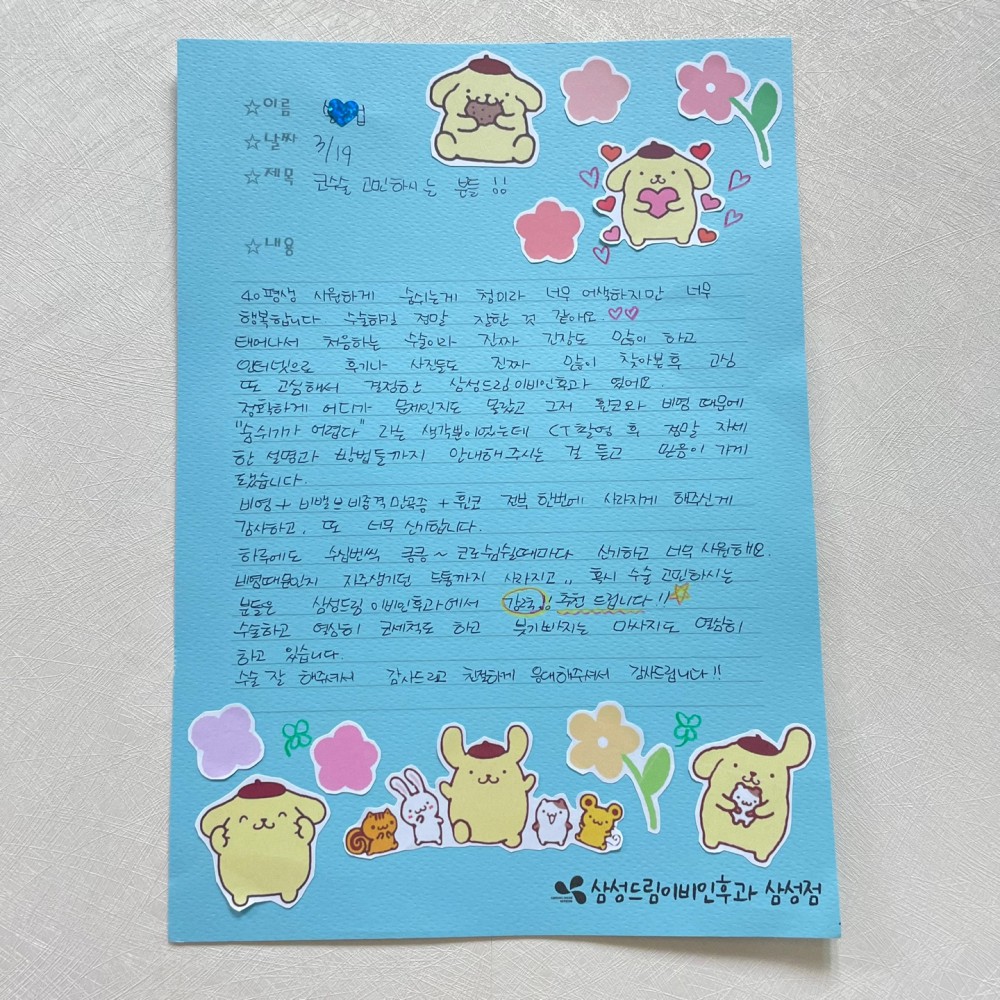 ☆이름
☆날짜 3/19
☆제목 코수술 고민하시는 분들!!
☆내용
40평생 시원하게 숨쉬는게 첨이라 너무 어색하지만 너무
행복합니다 수술하길 정말 잘한 것 같아요 ♡♡
태어나서 처음하는 수술이라 진짜 긴장도 많이 하고
인터넷으로 후기나 사진들도 진짜 많이 찾아본 후 고심
또 고심해서 결정한 삼성드림이비인후과 였어요
정확하게 어디가 문제인지도 몰랐고 그저 휜코와 비염 때문에
"숨쉬기가 어렵다" 라는 생각뿐이었는데 CT촬영 후 정말 자세
한 설명과 방법들까지 안내해주시는 걸 듣고 믿음이 가게
됐습니다.
비염 + 비밸브비중격만곡증 + 휜코 전부 한번에 사라지게 해주신게
감사하고, 또 너무 신기합니다.
하루에도 수십번씩 킁킁~ 코로 숨쉴때마다 신기하고 너무 시원해요.
비염때문인지 자주생기던 두통까지 사라지고,, 혹시 수술 고민하시는
분들은 삼성드림 이비인후과에서 강추!! 추천 드립니다!!
수술하고 열심히 코세척도 하고 붓기빠지는 마사지도 열심히
하고 있습니다.
수술 잘 해주셔서 감사드리고 친절하게 응대해주셔서 감사드립니다!!
삼성드림이비인후과 삼성점